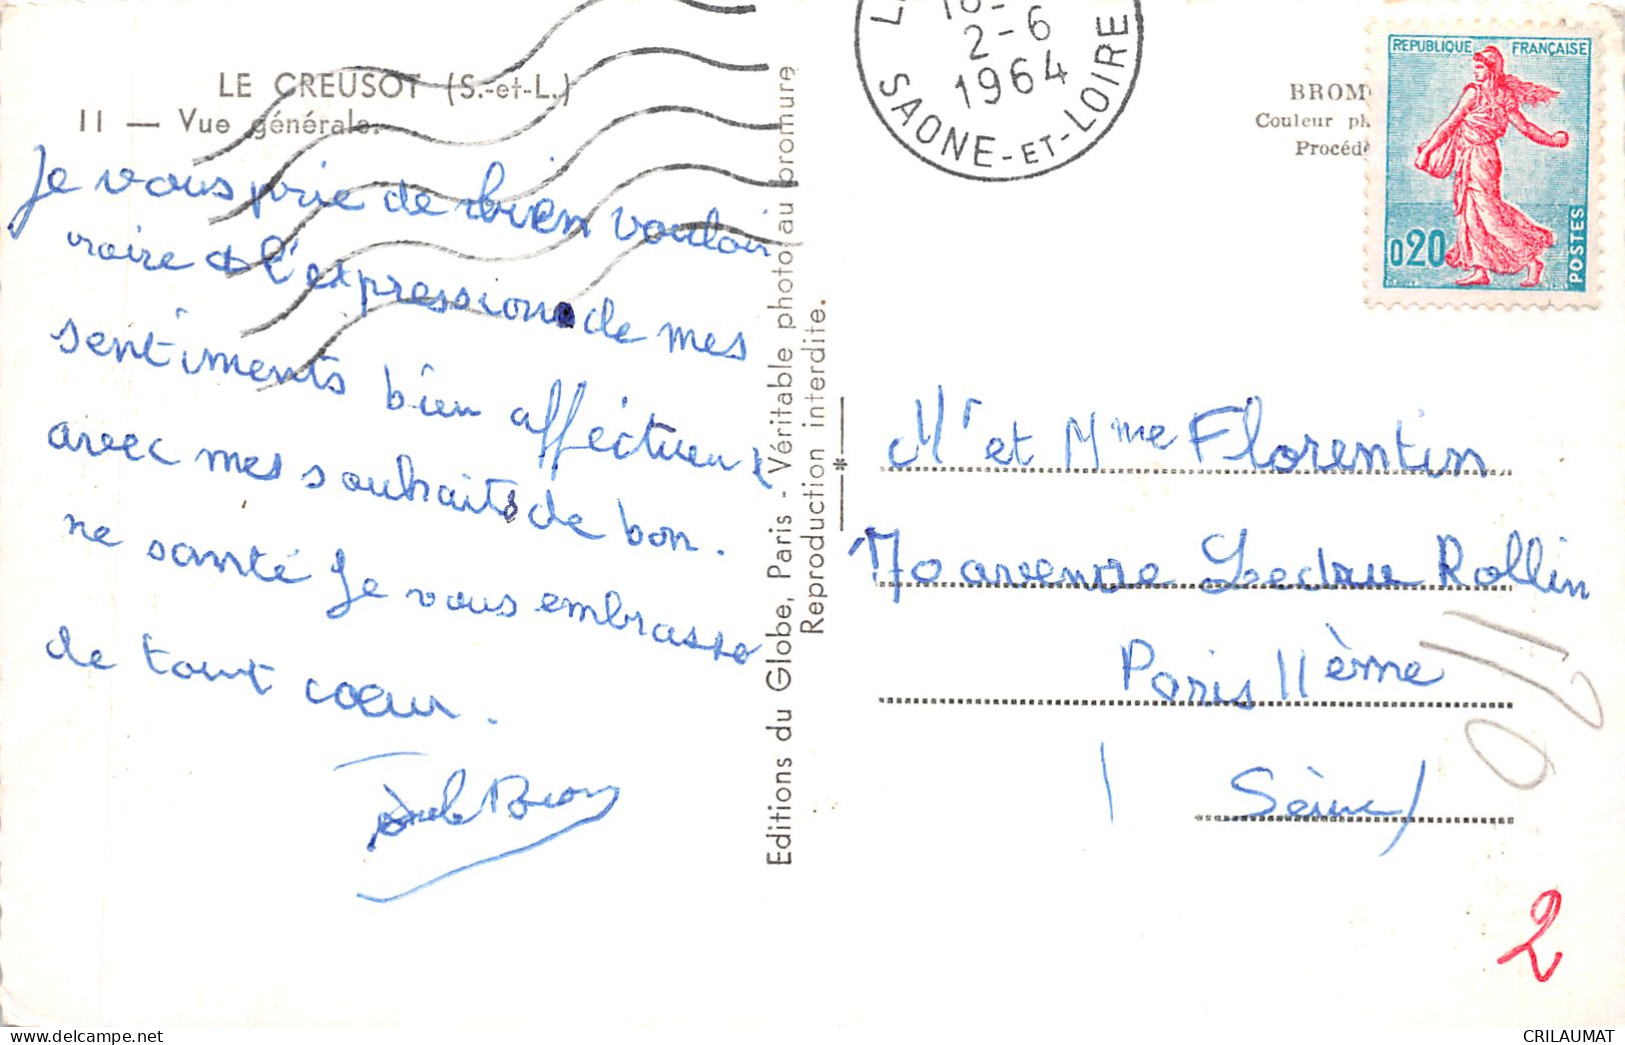 LE CREUSOT (S.-et-L.)
11 — Vue générale.
Je vous prie de bien vouloir
croire à l'expression de mes
sentiments bien afféctueux
avec mes souhaits de bon.
ne santé Je vous embrasse
de tout cœur.
Editions du Globe, Paris - Véritable photo au bromure
Reproduction interdite.
2-6
1964
SAONE-ET-LOIRE
BROM
Couleur ph
Procédé
REPUBLIQUE FRANÇAISE
0,20
POSTES
Mr et Mme Florentin
70 avenue Ledru Rollin
Paris 11ème
(Seine)
2
CRILAUMAT